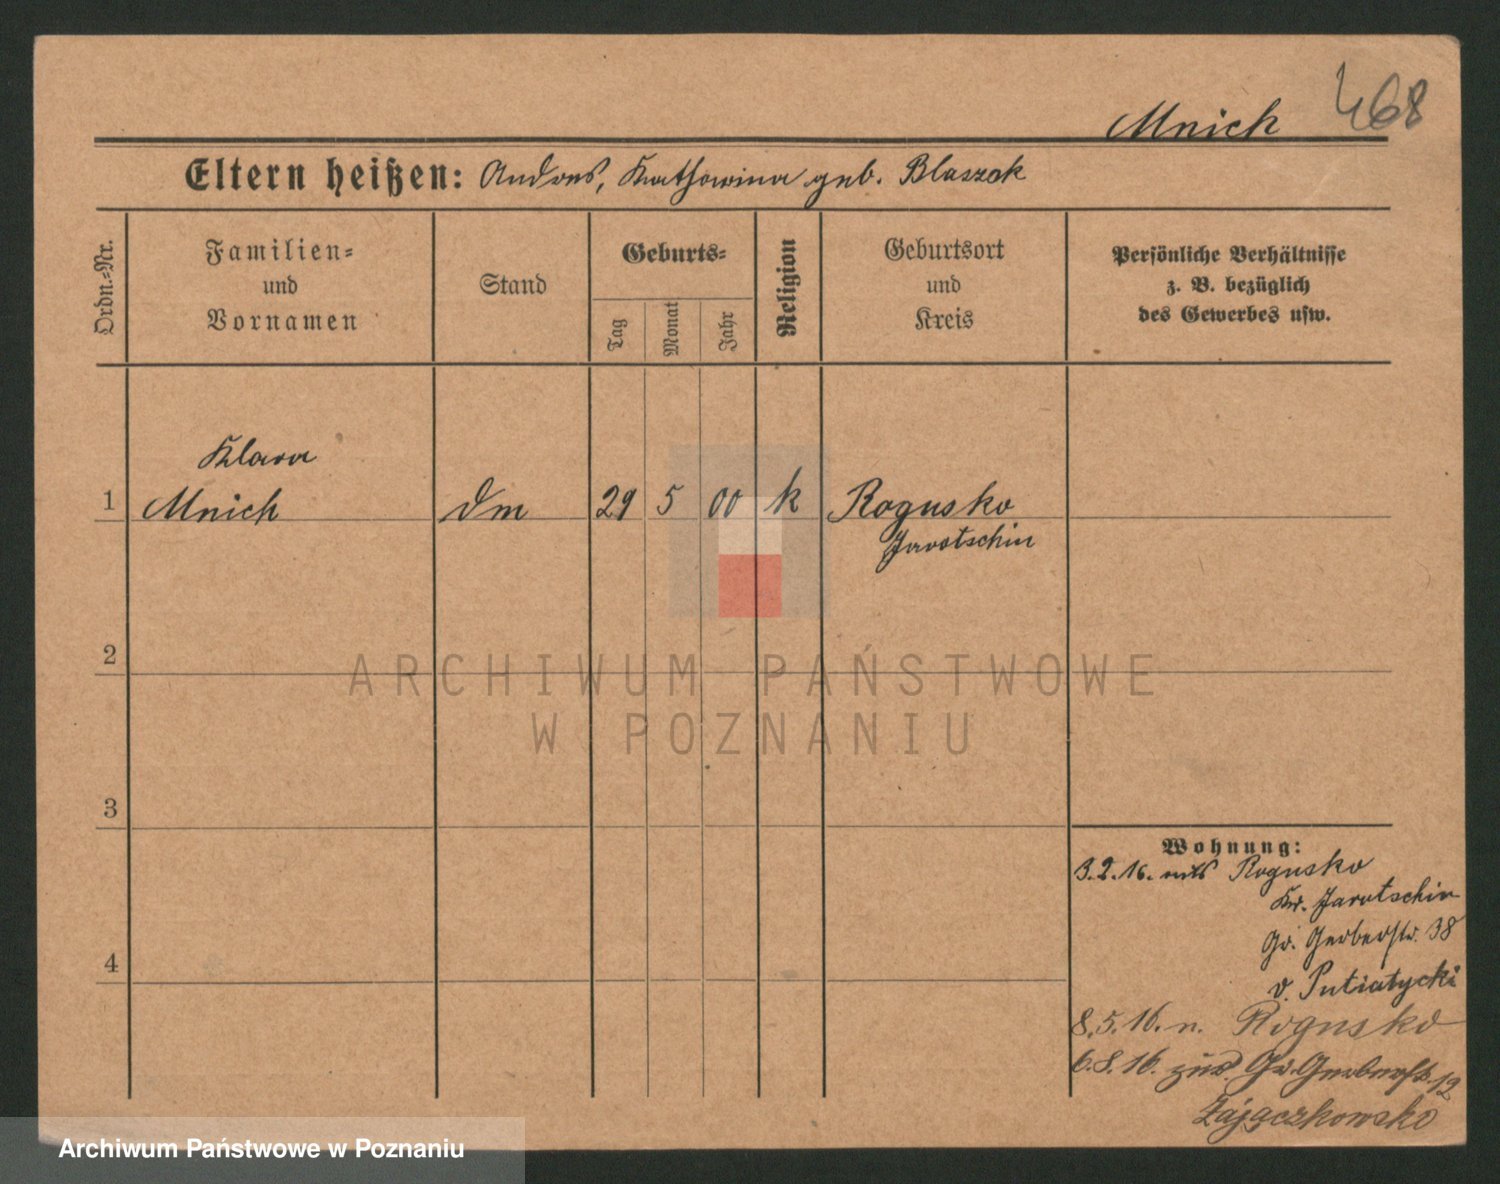 468
Mnich
Eltern heißen: Andreas, Katharina geb. Blaszak
Ordn.-Nr.
Familien-
und
Vornamen
Stand
Geburts-
Tag
Monat
Jahr
Religion
Geburtsort
und
Kreis
Persönliche Verhältnisse
z. B. bezüglich
des Gewerbes usw.
Klara
1 Mnich Dm 29 5 00 k Rogusko
Jarotschin
2
ARCHIWUM PAŃSTWOWE
W POZNANIU
3
Wohnung:
3.2.16. Rogusko
Kr. Jarotschin
4
Gr. Gerberstr. 38
v. Putiatycki
8.5.16. n. Rogusko
6.8.16. zur. Gr. Gerberstr. 12
Zajączkowsko
Archiwum Państwowe w Poznaniu